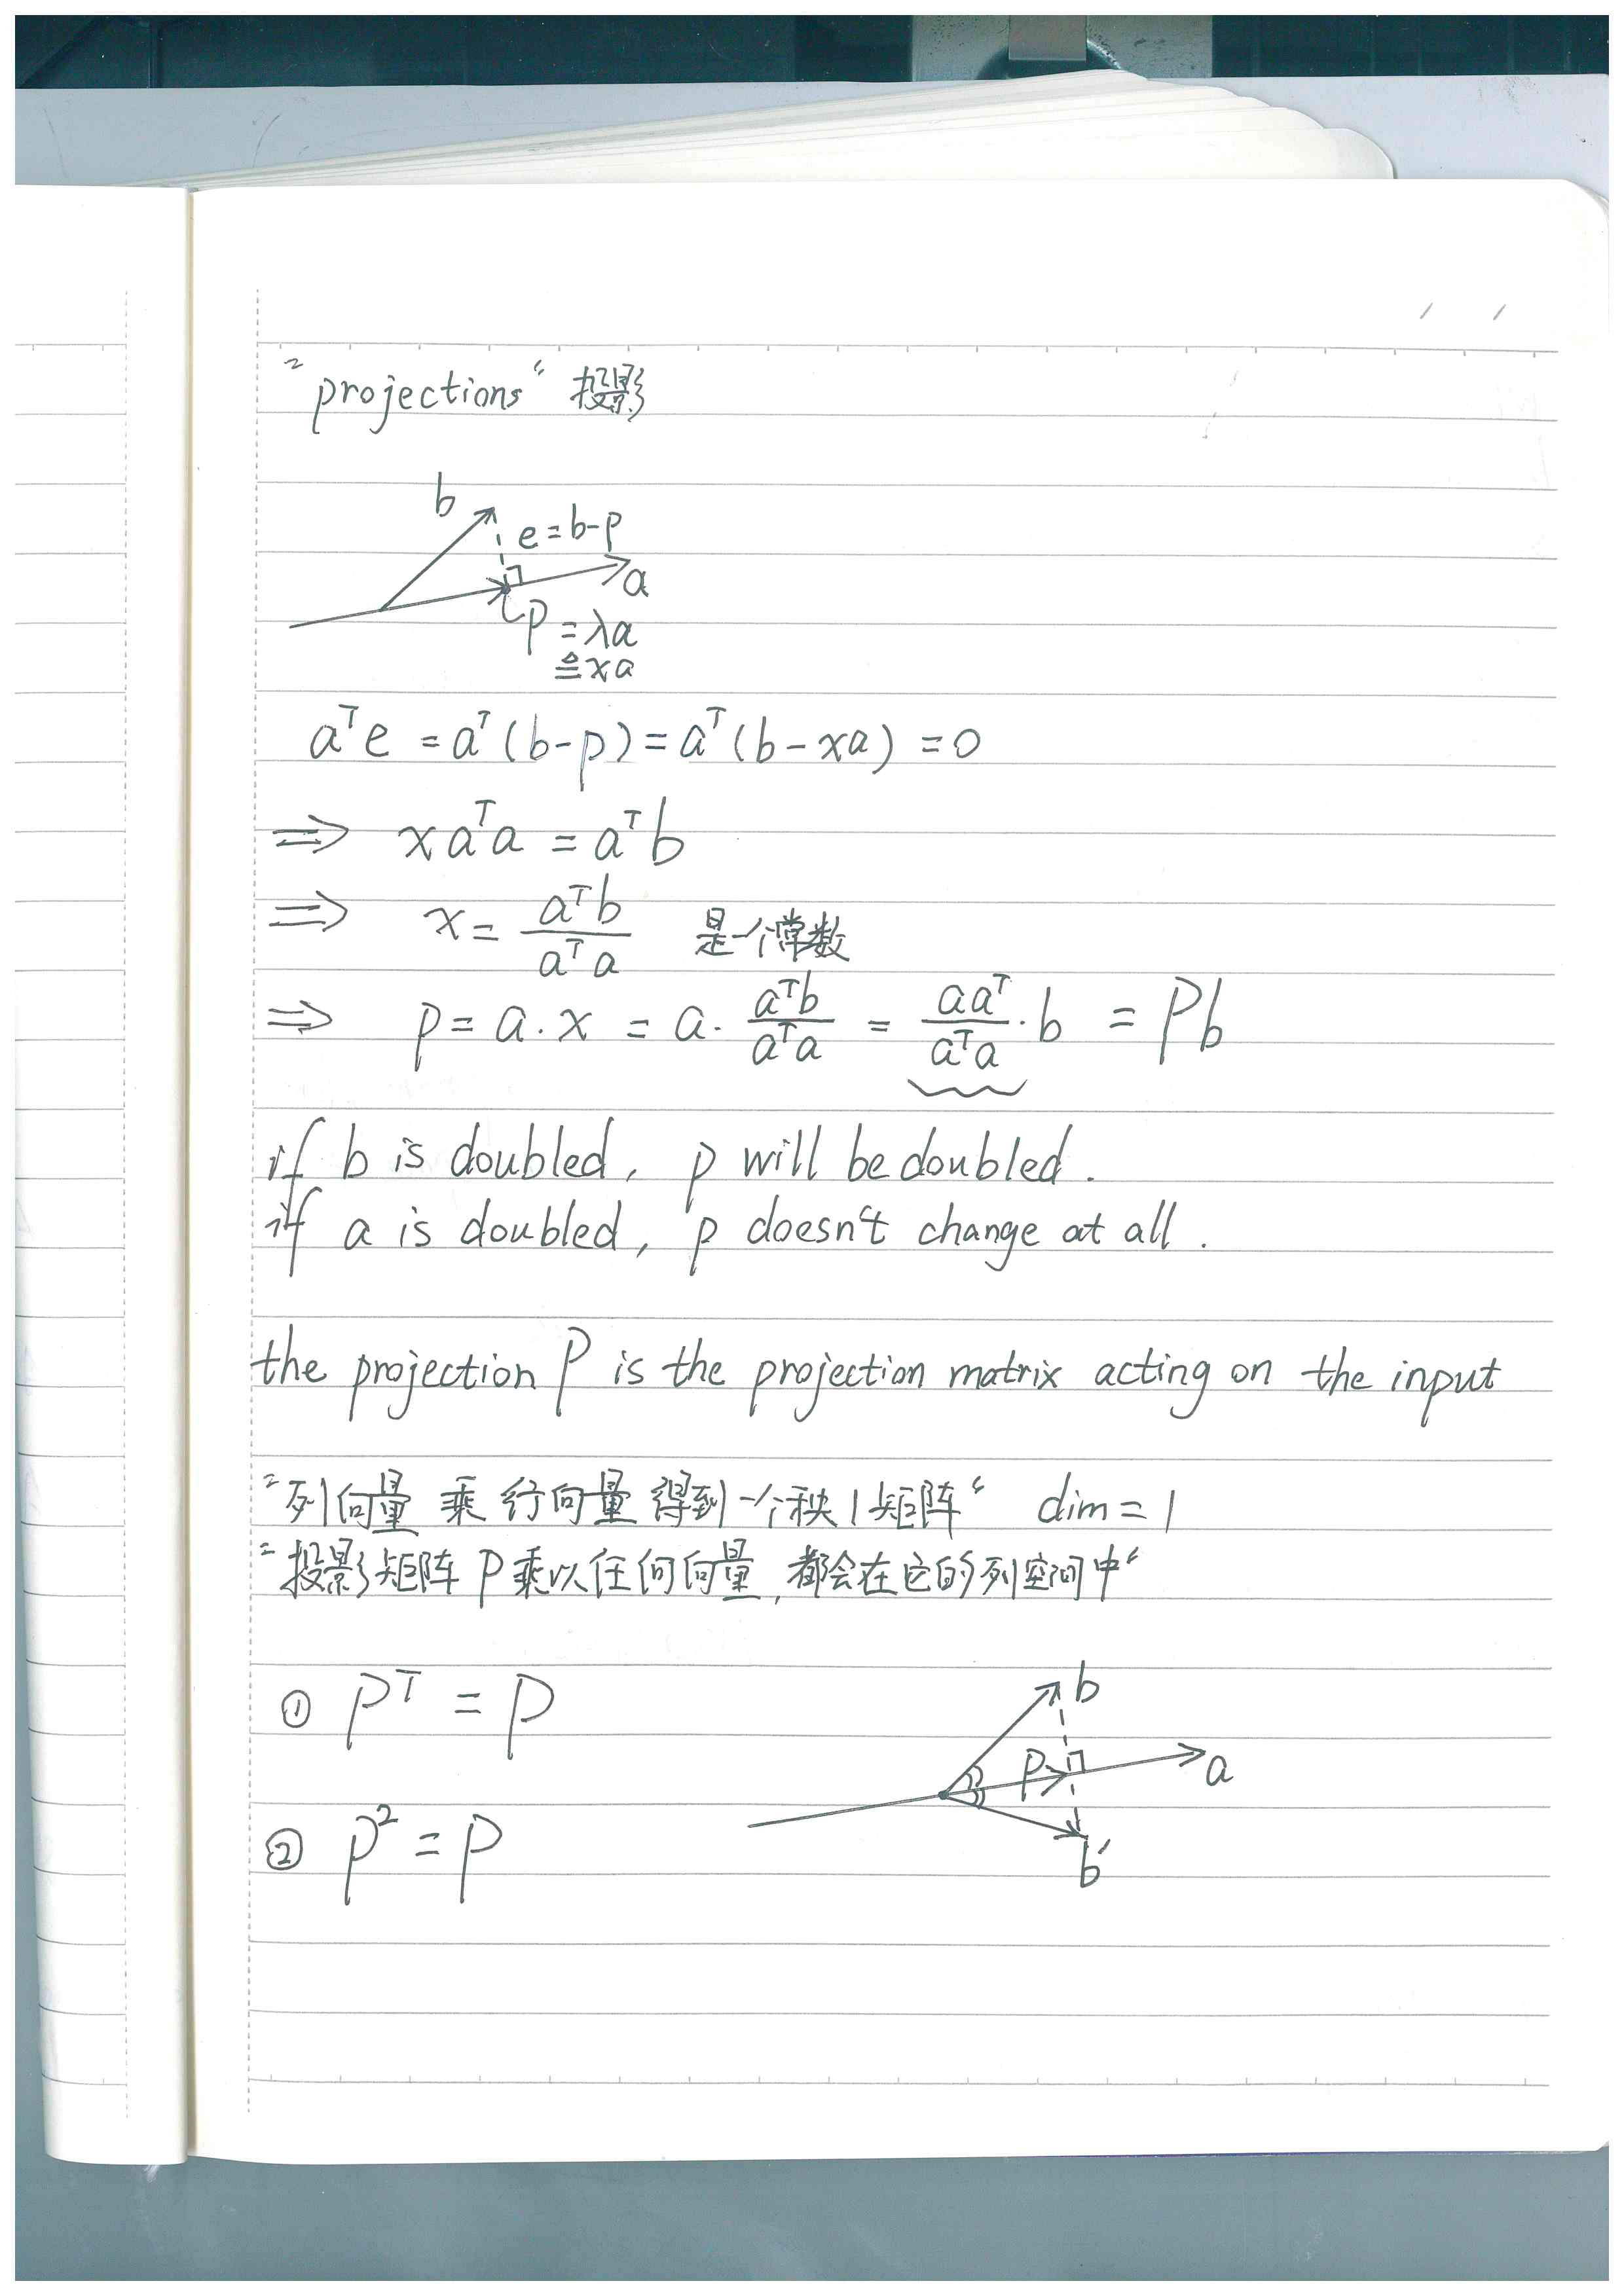 "projections" 投影
b
e=b-p
a
p=λa
≙xa
aᵀe = aᵀ(b-p) = aᵀ(b-xa) = 0
⇒ xaᵀa = aᵀb
⇒ x = aᵀb/aᵀa 是一个常数
⇒ p = a·x = a·aᵀb/aᵀa = aaᵀ/aᵀa·b = Pb
if b is doubled, p will be doubled.
if a is doubled, p doesn't change at all.
the projection P is the projection matrix acting on the input
"列向量 乘 行向量 得到一个秩1矩阵" dim=1
"投影矩阵P乘以任何向量,都会在它的列空间中"
① Pᵀ = P
b
p
a
② P² = P
b′